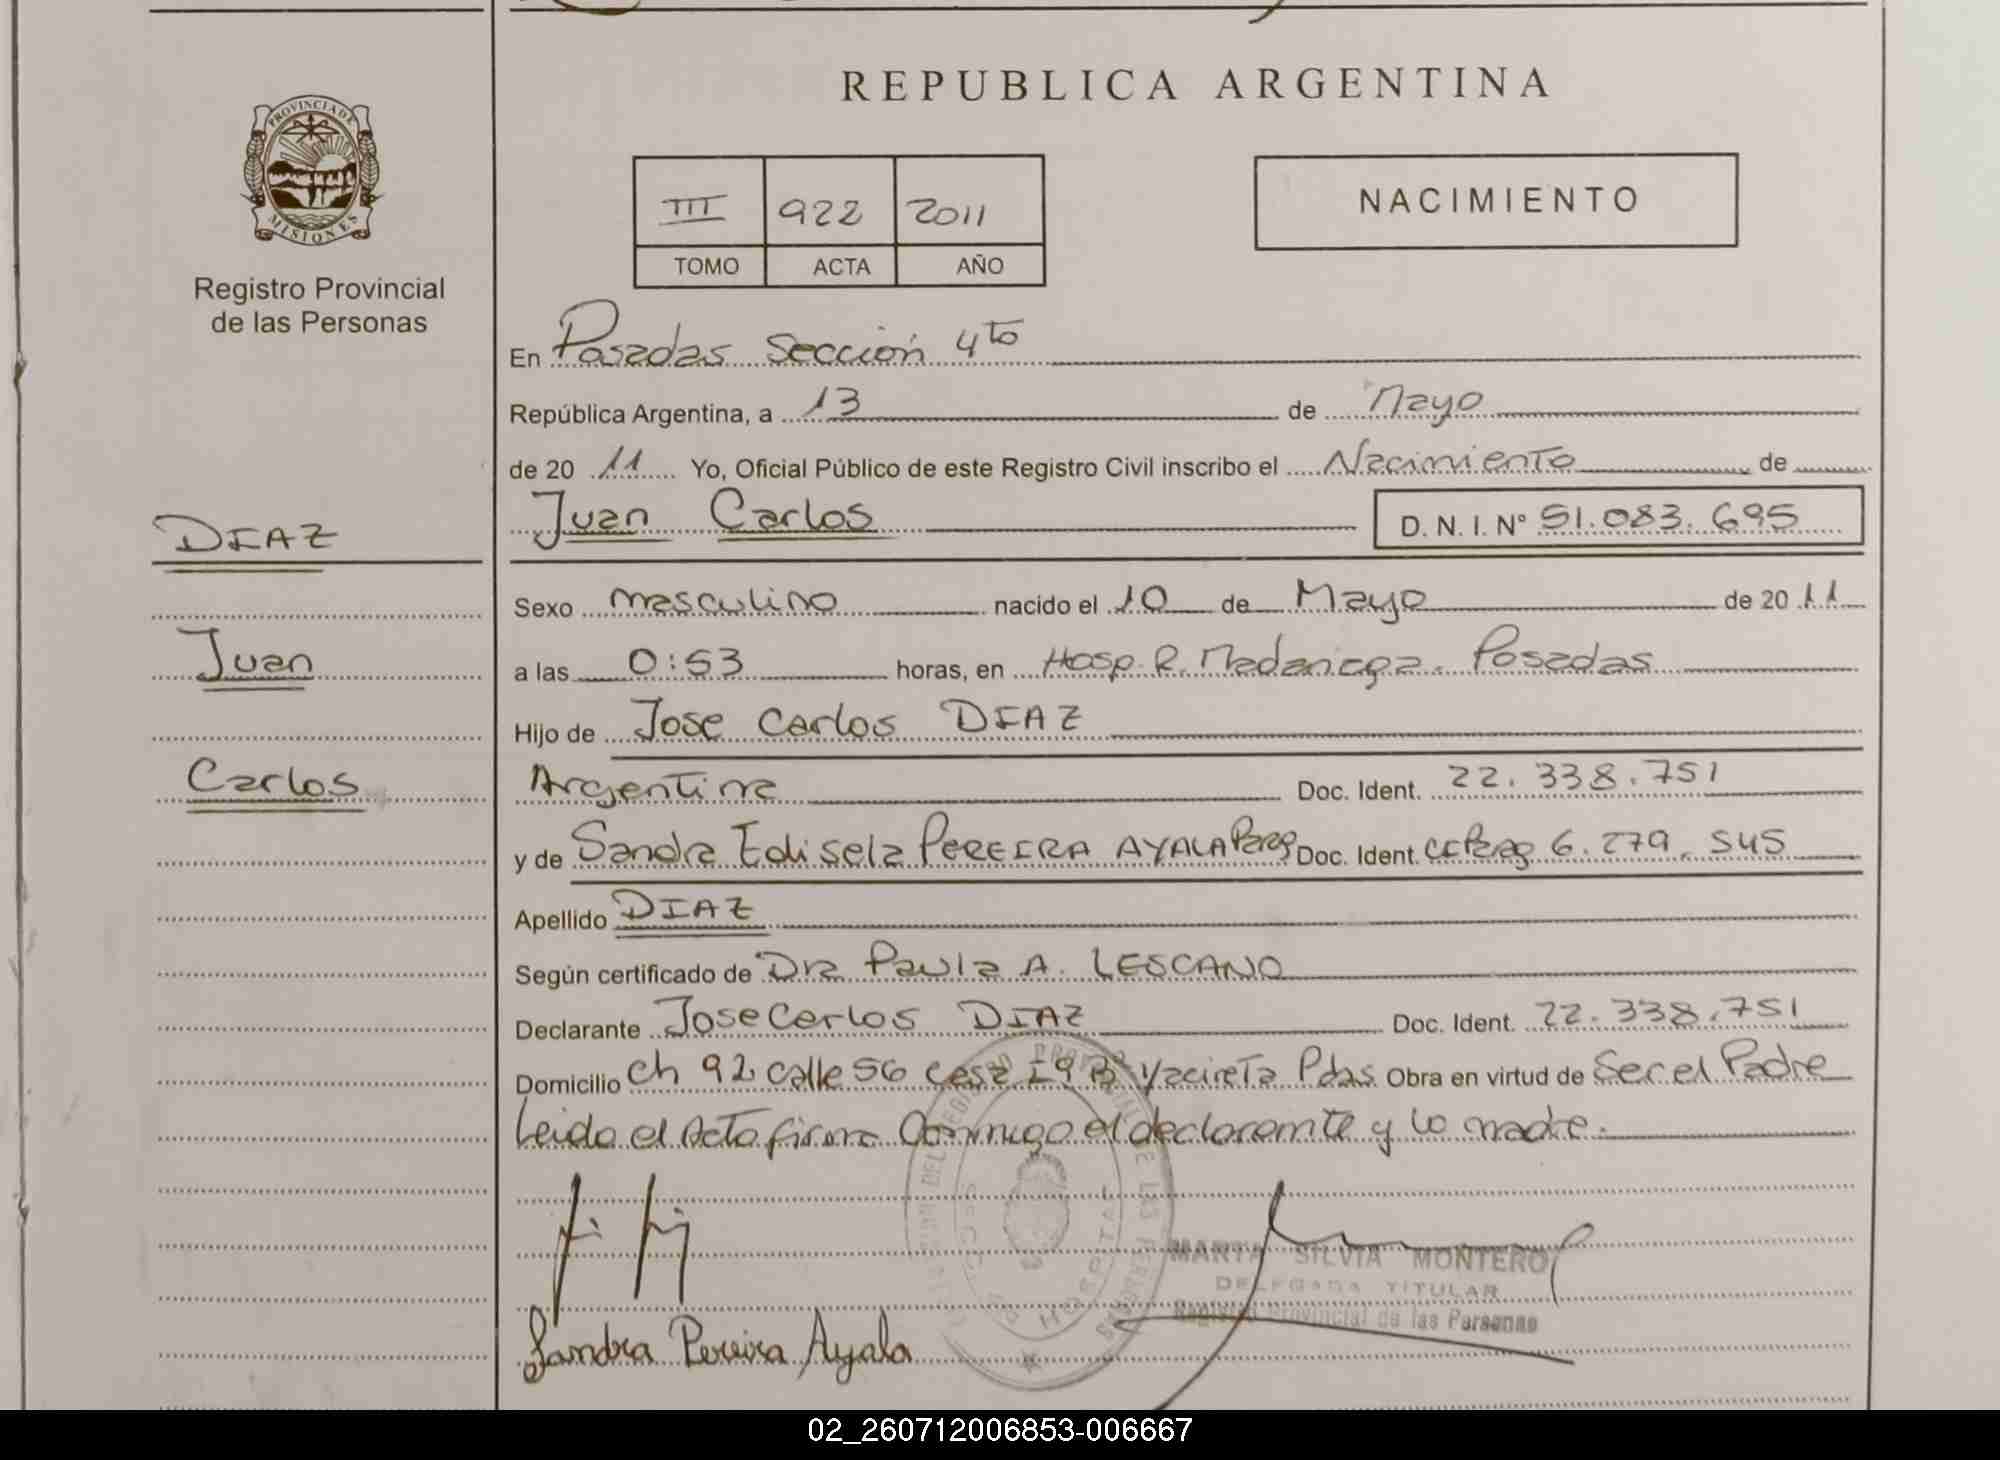 REPUBLICA ARGENTINA
PROVINCIA DE
MISIONES
Registro Provincial
de las Personas
III 922 2011
TOMO ACTA AÑO
NACIMIENTO
En Posadas Sección 4to
República Argentina, a 13 de Mayo
de 20 11 Yo, Oficial Público de este Registro Civil inscribo el Nacimiento de
Juan Carlos D. N. I. N° 51.083.695
DIAZ
Juan
Carlos
Sexo masculino nacido el 10 de Mayo de 20 11
a las 0:53 horas, en Hosp. R. Madariaga. Posadas
Hijo de Jose Carlos DIAZ
Argentina Doc. Ident. 22.338.751
y de Sandra Edisela PEREIRA AYALA Parag Doc. Ident. CI Parag 6.279.545
Apellido DIAZ
Según certificado de Dra Paula A. LESCANO
Declarante Jose Carlos DIAZ Doc. Ident. 22.338.751
Domicilio ch 92 calle 56 casa I9B Yacireta Pdas Obra en virtud de Ser el Padre
Leido el Acta firma Conmigo el declarante y la madre.
MARTA SILVIA MONTERO
DELEGADA TITULAR
Registro Provincial de las Personas
Sandra Pereira Ayala
02_260712006853-006667